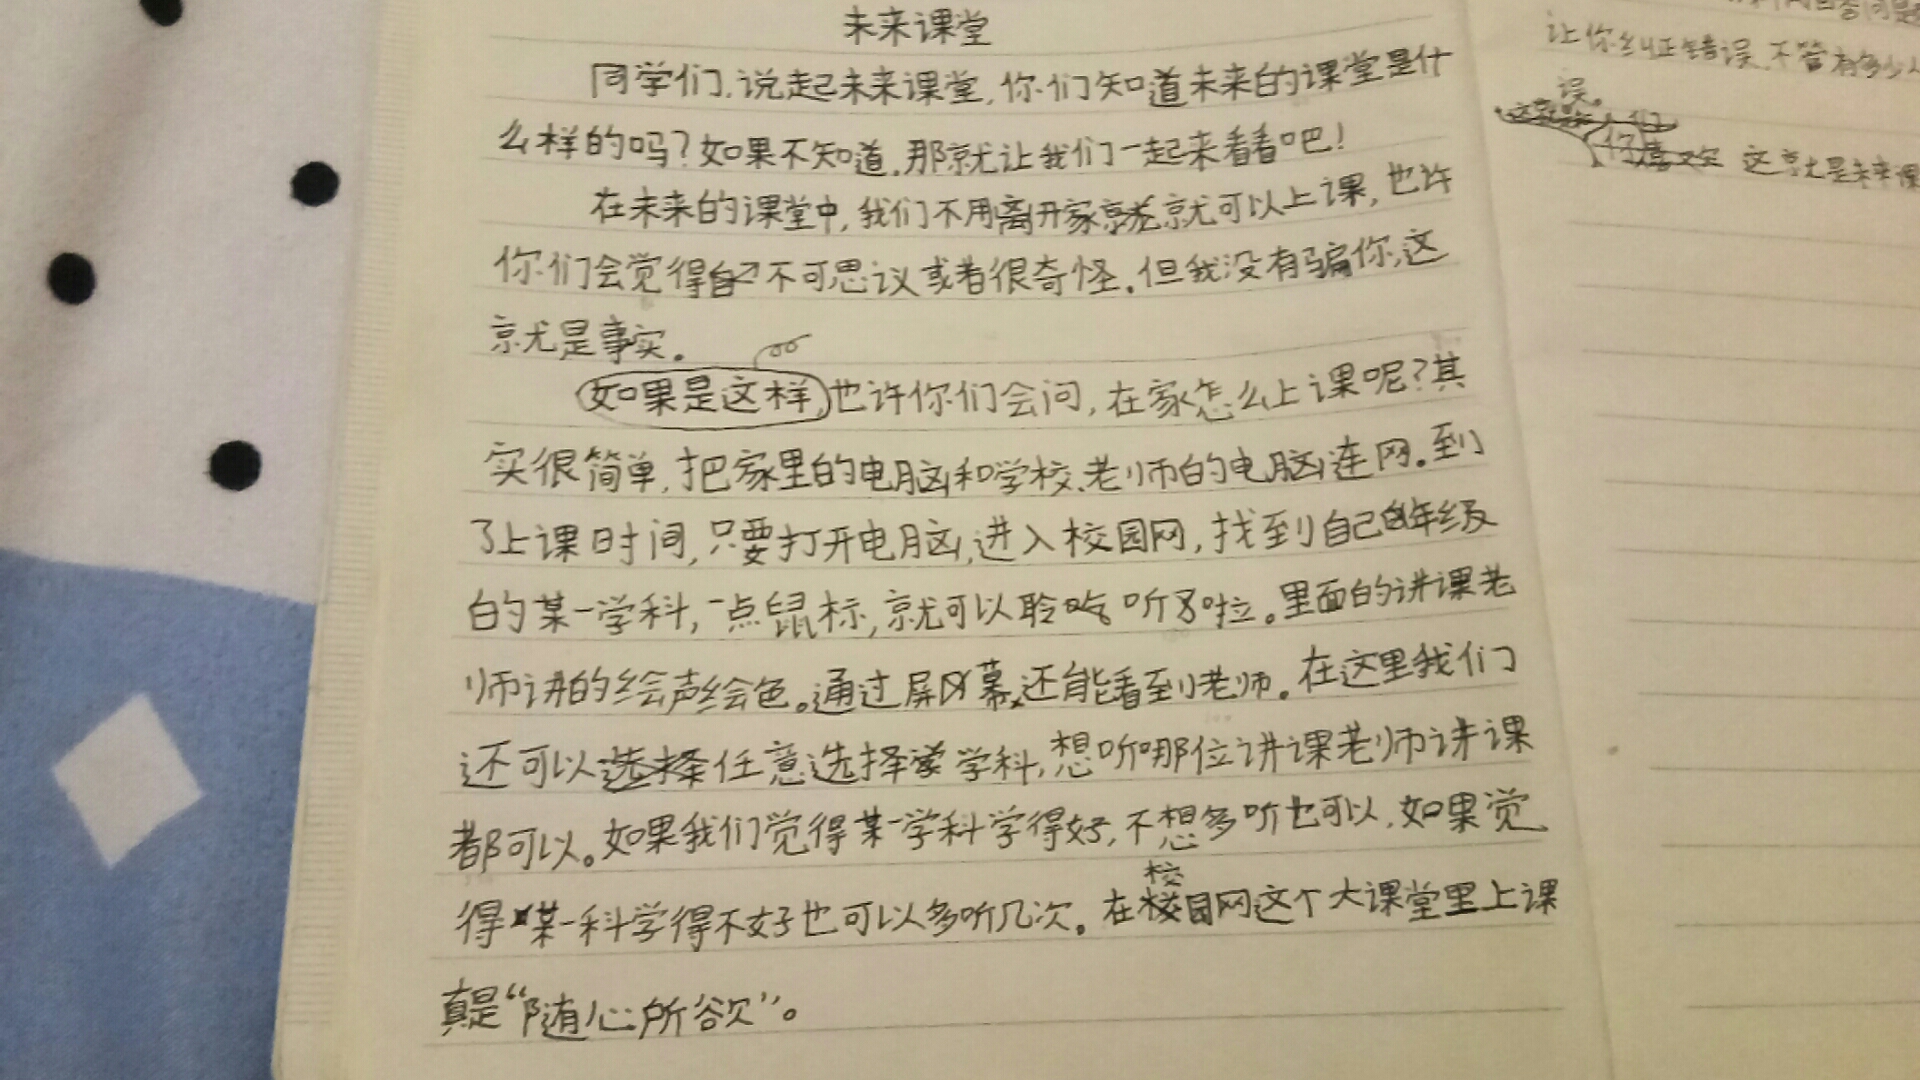 未来课堂
同学们,说起未来课堂,你们知道未来的课堂是什
么样的吗?如果不知道,那就让我们一起来看看吧!
在未来的课堂中,我们不用离开家就可以上课,也许
你们会觉得不可思议或者很奇怪。但我没有骗你,这
就是事实。
如果是这样,也许你们会问,在家怎么上课呢?其
实很简单,把家里的电脑和学校、老师的电脑连网。到
了上课时间,只要打开电脑,进入校园网,找到自己年级
的某一学科,一点鼠标,就可以聆听了啦。里面的讲课老
师讲的绘声绘色。通过屏幕,还能看到老师。在这里我们
还可以选择任意选择学科,想听哪位讲课老师讲课
都可以。如果我们觉得某一学科学得好,不想多听也可以,如果觉
得某一科学得不好也可以多听几次。在校园网这个大课堂里上课
真是“随心所欲”。
让你纠正错误,不管有多少
误。
你喜欢 这就是未来课